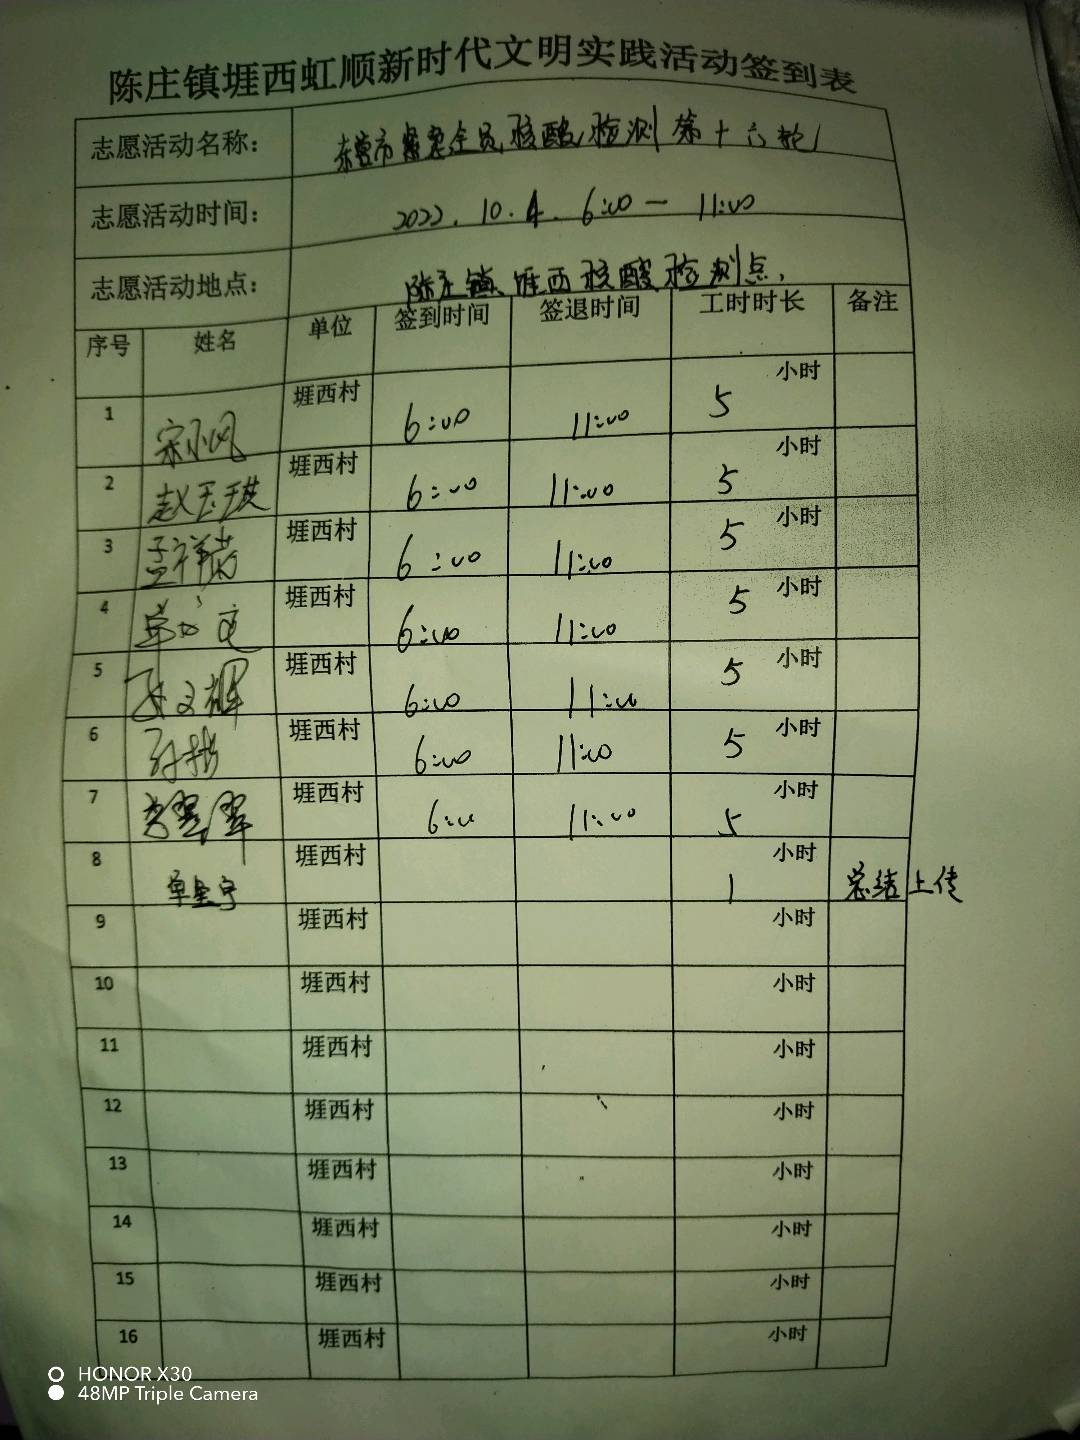 陈庄镇堐西虹顺新时代文明实践活动签到表
志愿活动名称： 东营市紧急全员核酸检测第十六轮
志愿活动时间： 2022.10.4. 6:00一 11:00
志愿活动地点： 陈庄镇堐西核酸检测点
序号 姓名 单位 签到时间 签退时间 工时时长 备注
1 宋小凤 堐西村 6:00 11:00 5 小时
2 赵玉琪 堐西村 6:00 11:00 5 小时
3 堐西村 6:00 11:00 5 小时
4 堐西村 6:00 11:00 5 小时
5 文辉 堐西村 6:00 11:00 5 小时
6 堐西村 6:00 11:00 5 小时
7 堐西村 6:00 11:00 5 小时
8 堐西村 1 小时 总结上传
9 堐西村 小时
10 堐西村 小时
11 堐西村 小时
12 堐西村 小时
13 堐西村 小时
14 堐西村 小时
15 堐西村 小时
16 堐西村 小时
HONOR X30
48MP Triple Camera